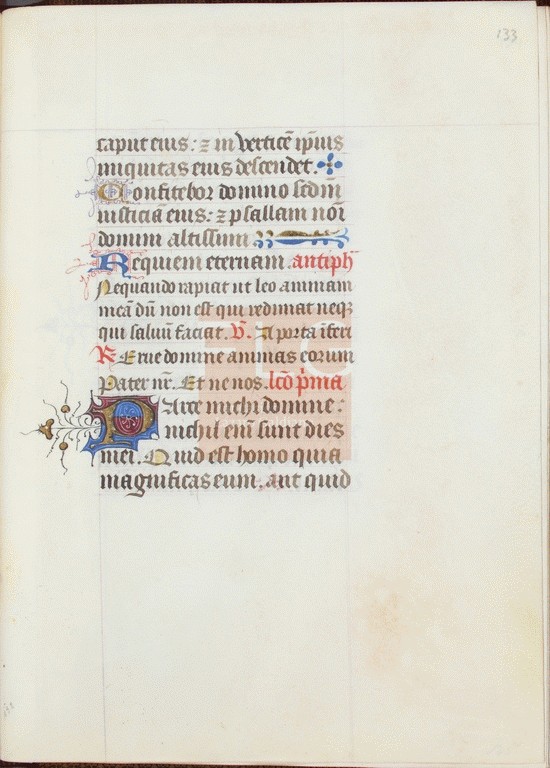 133
caput eius: ⁊ in verticē ip̄ius
iniquitas eius descendet.
Confitebor domino scdm̄
iusticiā eius: ⁊ psallam noī
domini altissimi
Requiem eternam. antiph
Nequando rapiat ut leo animam
meā dū non est qui redimat neqꝫ
qui saluū faciat. V̄. A porta īferi
R̄ Erue domine animas eorum
Pater nr̄. Et ne nos. lcō p̄ma
Parce michi domine:
nichil enī sunt dies
mei. Quid est homo quia
magnificas eum. aut quid